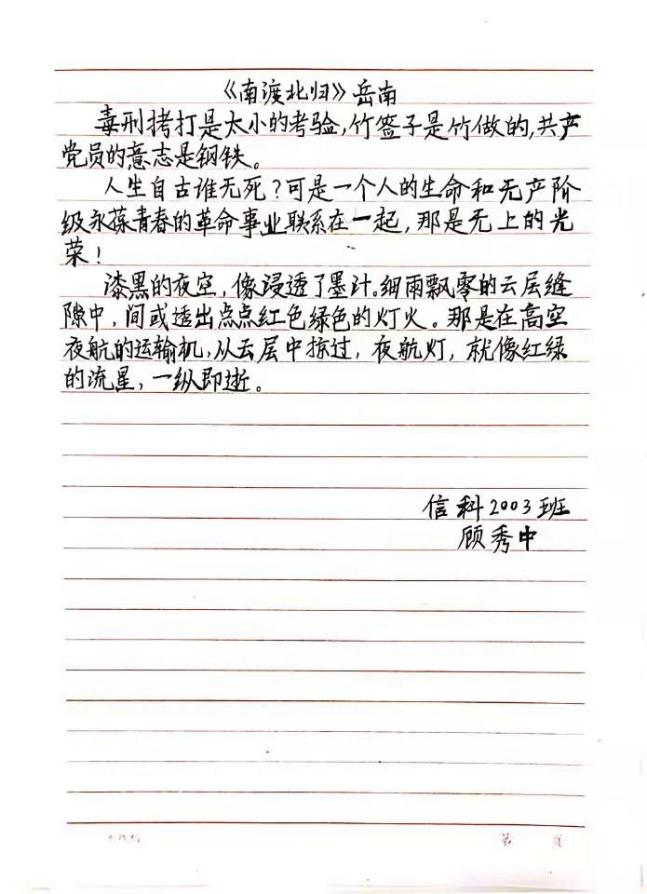 《南渡北归》岳南
毒刑拷打是太小的考验,竹签子是竹做的,共产
党员的意志是钢铁。
人生自古谁无死?可是一个人的生命和无产阶
级永葆青春的革命事业联系在一起,那是无上的光
荣!
漆黑的夜空,像浸透了墨汁。细雨飘零的云层缝
隙中,间或透出点点红色绿色的灯火。那是在高空
夜航的运输机,从云层中掠过,夜航灯,就像红绿
的流星,一纵即逝。
信科2003班
顾秀中
第 页